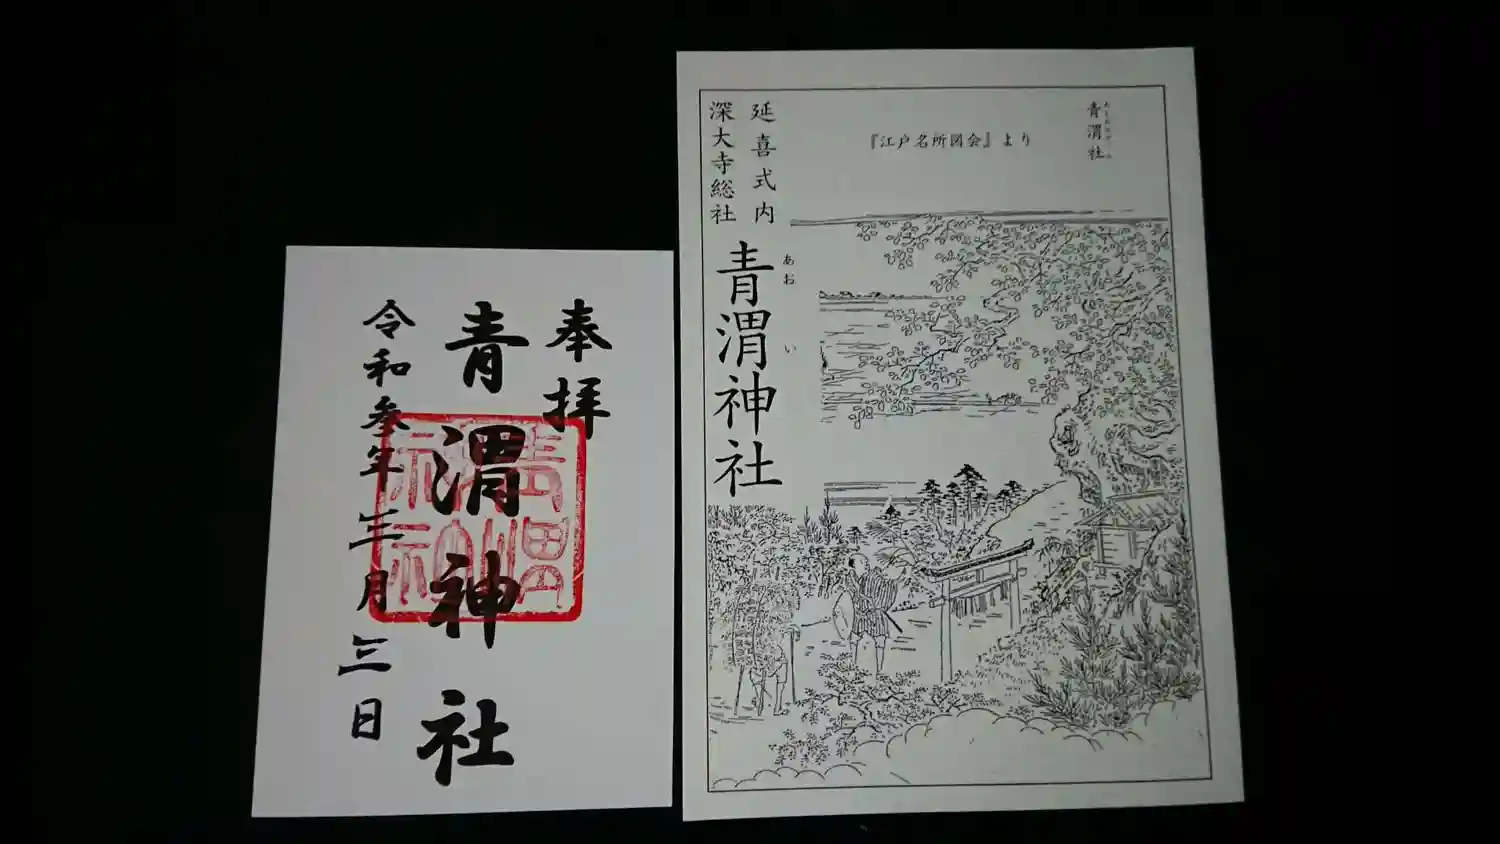 奉拝
青渭神社
令和参年三月三日
青渭神社
青渭社
『江戸名所図会』より
延喜式内
深大寺総社
あおい
青渭神社